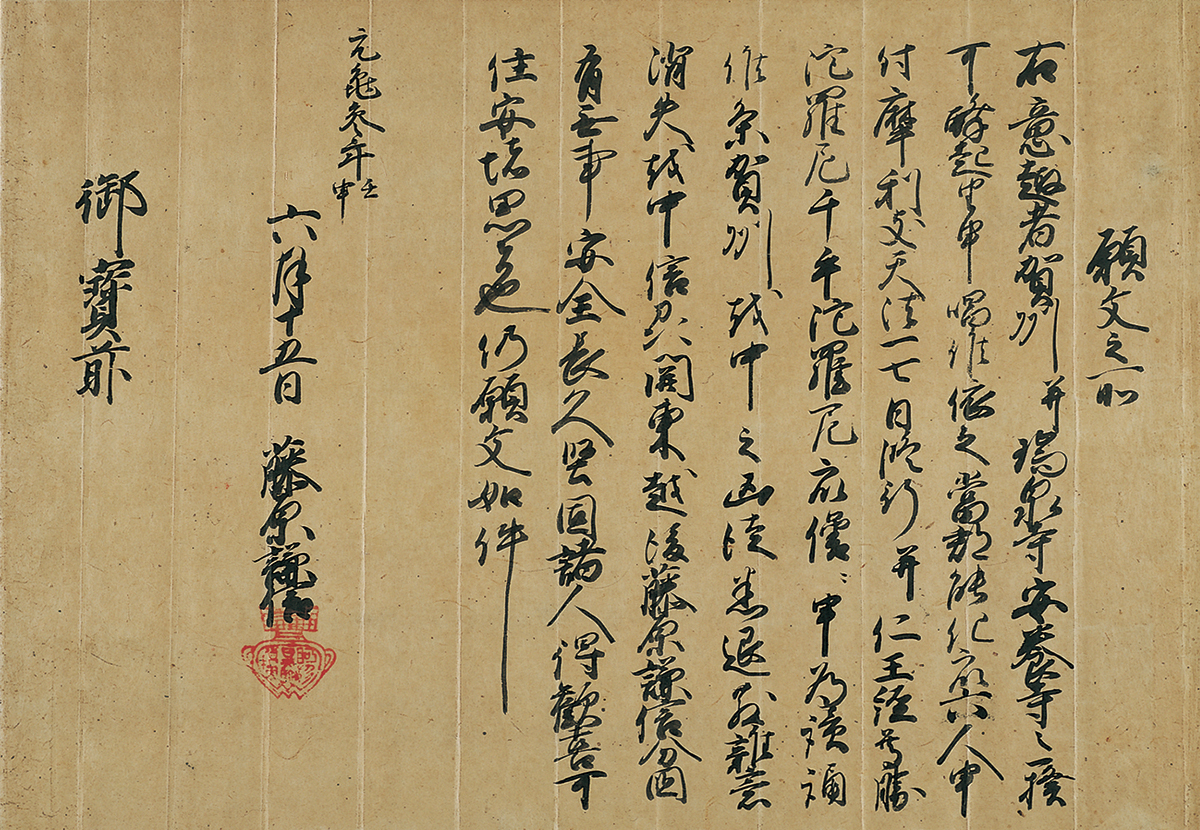 願文之事
右意趣者賀州并瑞泉寺安養寺之一揆
可酔起由申唱候依之當郡能化衆六人申
付摩利支天法一七日修行并仁王経尊勝
陀羅尼千手陀羅尼衆僧ニ申為読誦
候条賀州越中之凶徒悉退散雑意
消失越中信州関東越後藤原謙信分国
有無事安全長久堅固諸人得歓喜可
住安堵思者也仍願文如件
元亀参年壬申
六月十五日 藤原謙信
御寶前